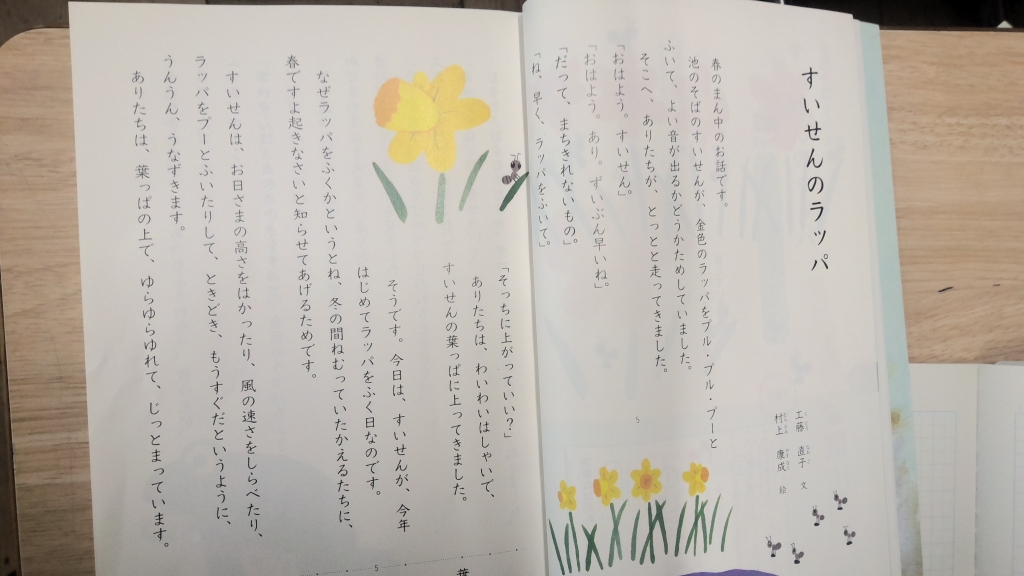 すいせんのラッパ
工藤 直子 文
村上 康成 絵
春のまん中のお話です。
池のそばのすいせんが、金色のラッパをプル・プル・プーと
ふいて、よい音が出るかどうかためしていました。
そこへ、ありたちが、とっとと走ってきました。
「おはよう。すいせん。」
「おはよう。あり。ずいぶん早いね。」
「だって、まちきれないもの。」
「ね、早く、ラッパをふいて。」
5
「そっちに上がっていい?」
ありたちは、わいわいはしゃいで、
すいせんの葉っぱに上ってきました。
そうです。今日は、すいせんが、今年
はじめてラッパをふく日なのです。
なぜラッパをふくかというとね、冬の間ねむっていたかえるたちに、
春ですよ起きなさいと知らせてあげるためです。
すいせんは、お日さまの高さをはかったり、風の速さをしらべたり、
ラッパをプーとふいたりして、ときどき、もうすぐだというように、
うんうん、うなずきます。
ありたちは、葉っぱの上で、ゆらゆらゆれて、じっとまっています。
5
葉